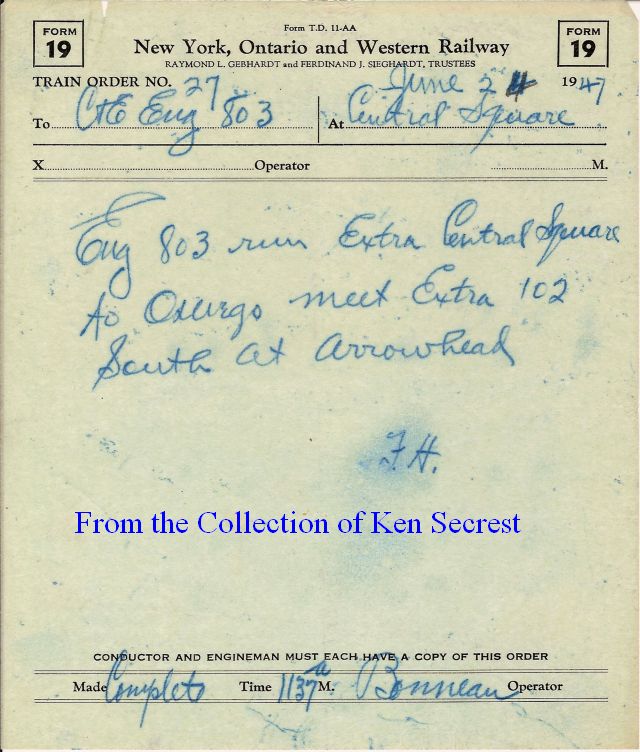 FORM 19
Form T.D. 11-AA
FORM 19
New York, Ontario and Western Railway
RAYMOND L. GEBHARDT and FERDINAND J. SIEGHARDT, TRUSTEES
TRAIN ORDER NO. 27 June 24 1947
To C&E Eng 803 At Central Square
X Operator M.
Eng 803 run Extra Central Square
to Oswego meet Extra 102
South at Arrowhead
F.H.
From the Collection of Ken Secrest
CONDUCTOR AND ENGINEMAN MUST EACH HAVE A COPY OF THIS ORDER
Made Complete Time 1137 a M. Bonneau Operator